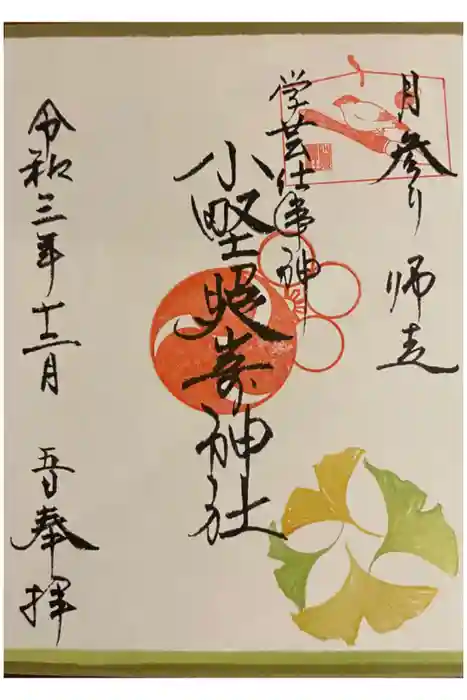 月参り 師走
学芸仕事神
小野照崎神社
令和三年十二月 五日 奉拝